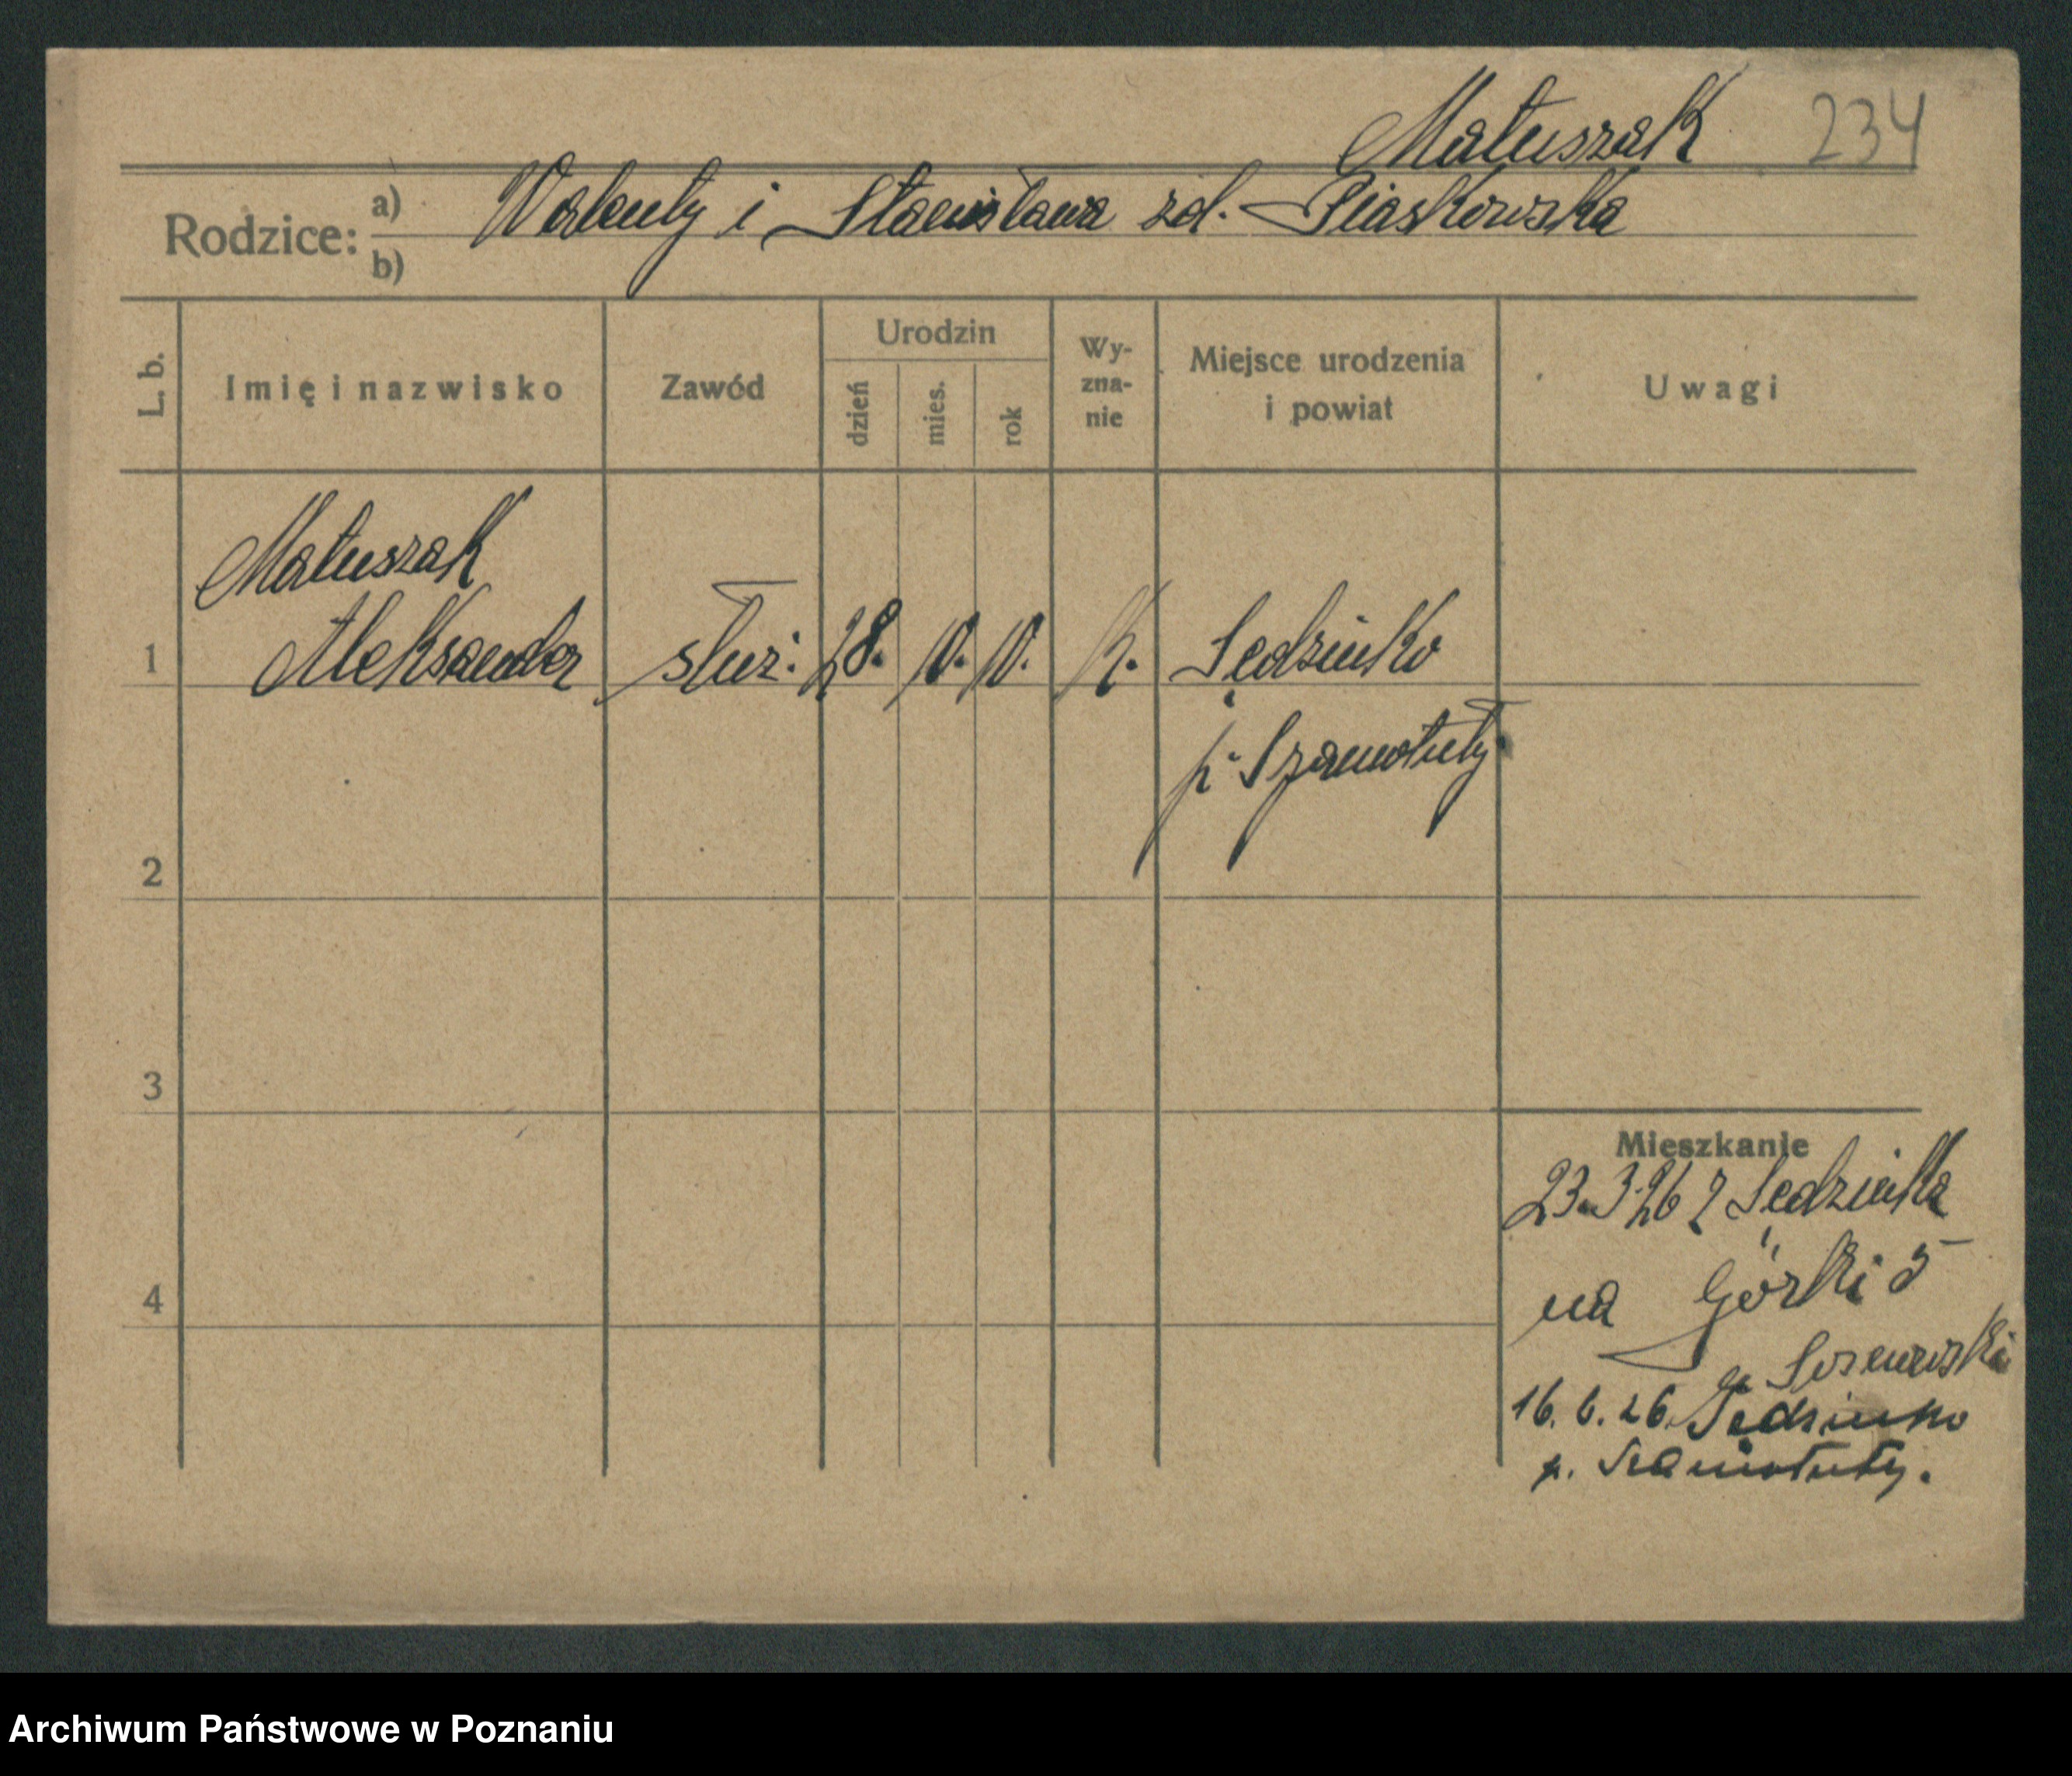 Matuszak 234
Rodzice: a) Walenty i Stanisława zd. Piaskowska
b)
L. b. Imię i nazwisko Zawód Urodzin dzień mies. rok Wy-zna-nie Miejsce urodzenia i powiat Uwagi
Matuszak
1 Aleksander służ. 28. 10. 10. k. Sędzinko
p. Szamotuły
2
3
Mieszkanie
23.3.26 z Sędzinka
na Górki 5
4
16.6.26 Sędzinko
p. Szamotuły.
Archiwum Państwowe w Poznaniu